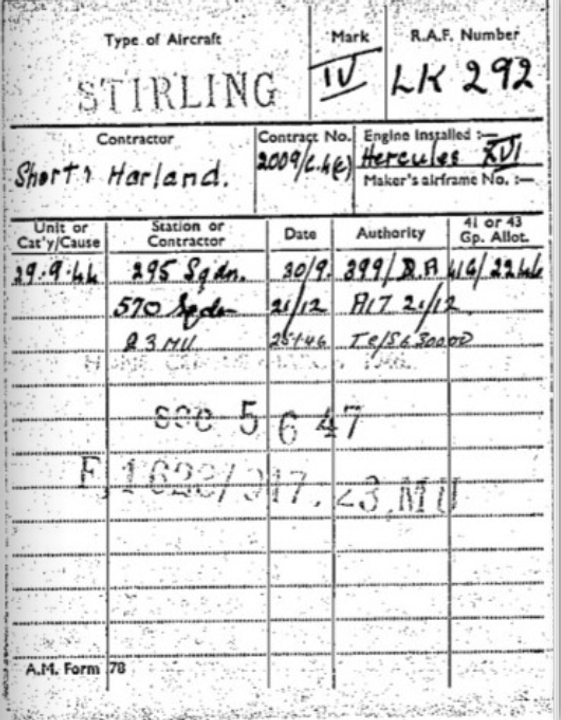 Type of Aircraft Mark R.A.F. Number
STIRLING IV LK 292
Contractor Contract No. Engine Installed :—
Short & Harland. 2009/ Hercules XVI
Maker's airframe No. :—
Unit or Cat'y/Cause Station or Contractor Date Authority 41 or 43 Gp. Allot.
29.9.44 295 Sqdn. 30/9. 399/
570 Sqdn 21/12 21/12
23 MU
SOC 5 6 47
F,1622/ 23.MU
A.M. Form 78